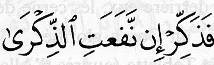 فَذَكِّرۡ إِن نَّفَعَتِ ٱلذِّكۡرَىٰ